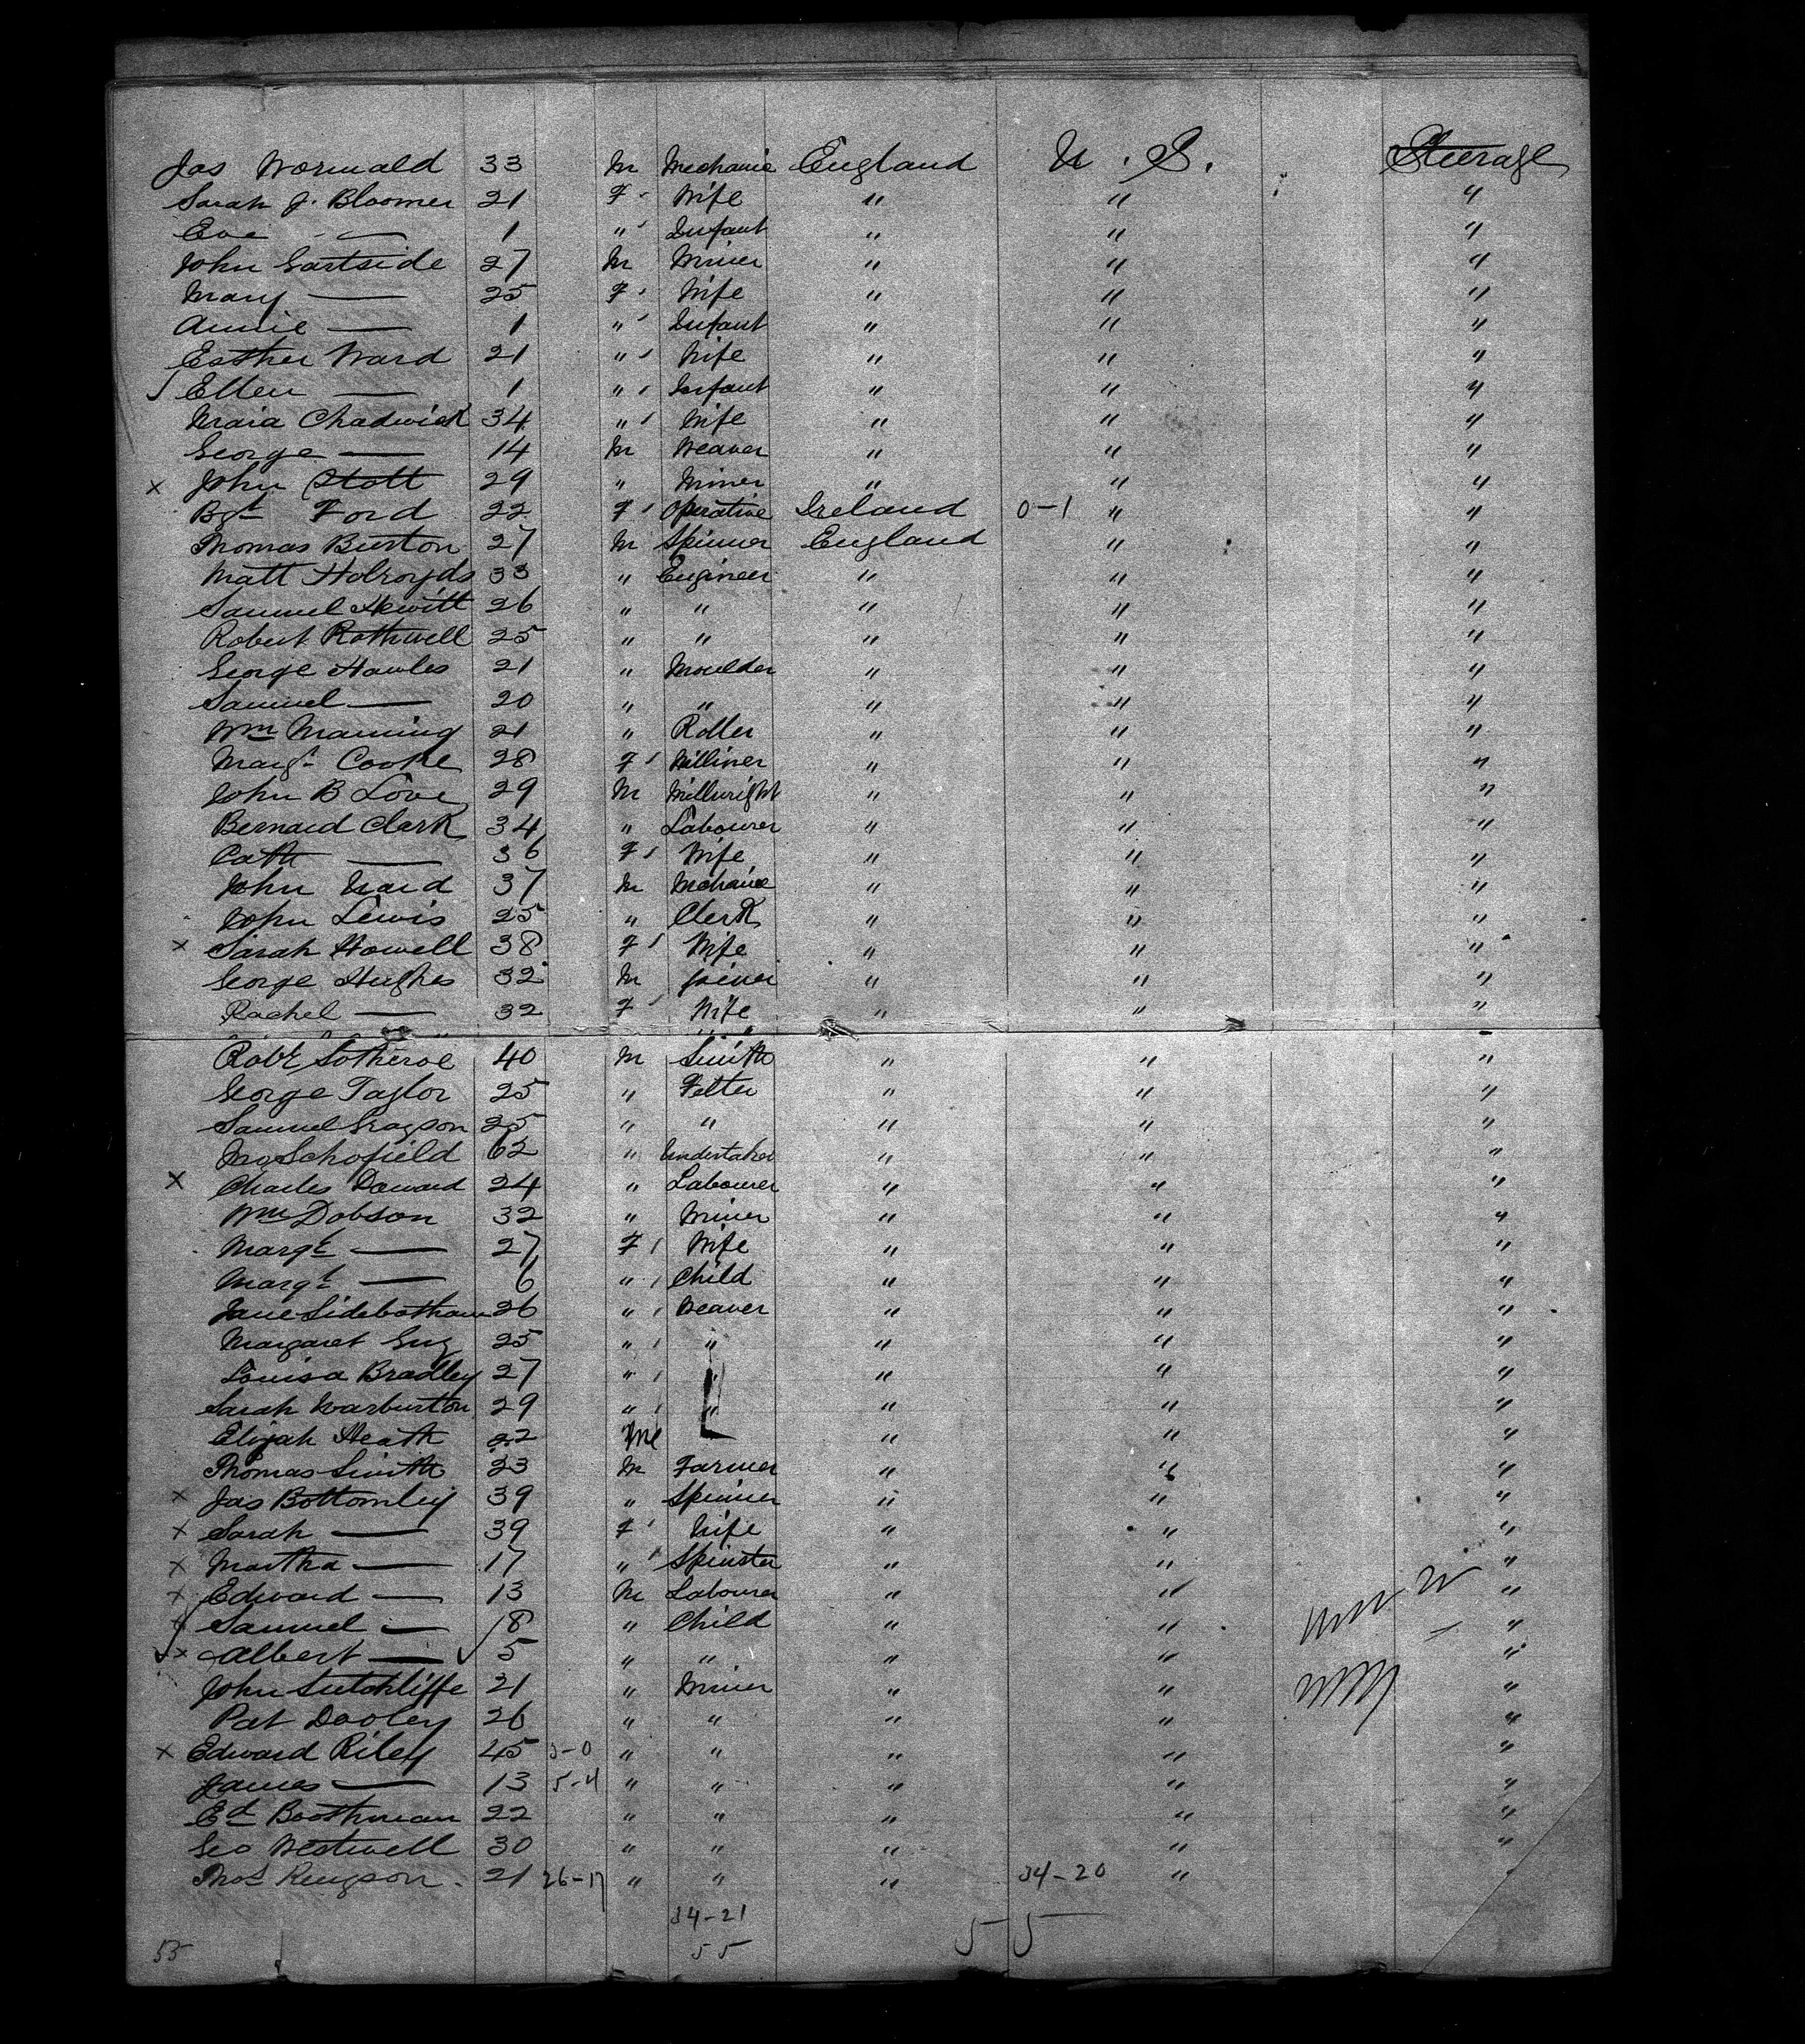 Jas Wormald 33 M Mechanic England U.S. Steerage
Sarah J. Bloomer 21 F Wife " " "
Eve — 1 " Infant " " "
John Gartside 27 M Miner " " "
Mary — 25 F Wife " " "
Annie — 1 " Infant " " "
Esther Ward 21 " Wife " " "
Ellen — 1 " Infant " " "
Maria Chadwick 34 " Wife " " "
George — 14 M Weaver " " "
x John Stott 29 " Miner " " "
Bgt Ford 22 F Operative Ireland 0-1 " "
Thomas Burton 27 M Spinner England " "
Matt Holroyds 33 " Engineer " " "
Samuel Hewitt 26 " " " " "
Robert Rothwell 25 " " " " "
George Hawles 21 " Moulder " " "
Samuel — 20 " " " " "
Wm Manning 21 " Roller " " "
Margt Cooke 28 F Milliner " " "
John B Love 29 M Millwright " " "
Bernard Clark 34 " Labourer " " "
Cath — 36 F Wife " " "
John 37 M Mechanic " " "
John Lewis 25 " Clerk " " "
x Sarah Howell 38 F Wife " " "
George Hughes 32 M Joiner " " "
Rachel — 32 F Wife " " "
Robt 40 M Smith " " "
George Taylor 25 " Fetter " " "
Samuel Grayson 25 " " " " "
Jno Schofield 62 " Undertaker " " "
x Charles 24 " Labourer " " "
Wm Dobson 32 " Miner " " "
Margt — 27 F Wife " " "
Margt — 6 " Child " " "
Jane Sidebotham 26 " Weaver " " "
Margaret Guy 25 " " " " "
Louisa Bradley 27 " " " " "
Sarah Warburton 29 " " " " "
Elijah Heath 22 " "  "
Thomas Smith 23 M Farmer " " "
x Jas Bottomley 39 " Spinner " " "
x Sarah — 39 F Wife " " "
x Martha — 17 " Spinster " " "
x Edward — 13 M Labourer " " "
x Samuel — 8 " Child " " "
x Albert — 5 " " " " "
John Sutcliffe 21 " Miner " " "
Pat Dooley 26 " " " " "
x Edward Riley 45 " " " " "
James — 13 5-4 " " " " "
Ed Boothman 22 " " " " "
Geo Westwell 30 " " " " "
Thos 21 26-17 " " " 34-20 "
34-21
55 55 55